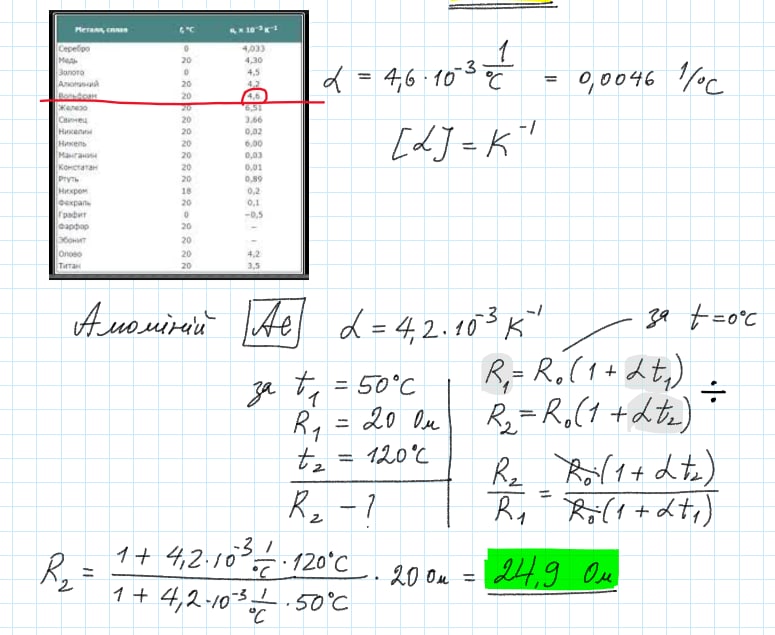 Металл, сплав t, °C α, × 10⁻³ K⁻¹
Серебро 0 4,033
Медь 20 4,30
Золото 0 4,5
Алюминий 20 4,2
Вольфрам 20 4,6
Железо 20 6,51
Свинец 20 3,66
Никелин 20 0,02
Никель 20 6,00
Манганин 20 0,03
Константан 20 0,01
Ртуть 20 0,89
Нихром 18 0,2
Фехраль 20 0,1
Графит 0 −0,5
Фарфор 20 –
Эбонит 20 –
Олово 20 4,2
Титан 20 3,5
α = 4,6·10⁻³ 1/°C = 0,0046 1/°C
[α] = K⁻¹
Алюміній Al α = 4,2·10⁻³ K⁻¹
за t = 0°C
за t₁ = 50°C
R₁ = 20 Ом
t₂ = 120°C
R₂ – ?
R₁ = R₀(1 + αt₁) ÷
R₂ = R₀(1 + αt₂)
R₂/R₁ = R₀·(1 + αt₂)/R₀·(1 + αt₁)
R₂ = (1 + 4,2·10⁻³ 1/°C · 120°C)/(1 + 4,2·10⁻³ 1/°C · 50°C) · 20 Ом = 24,9 Ом